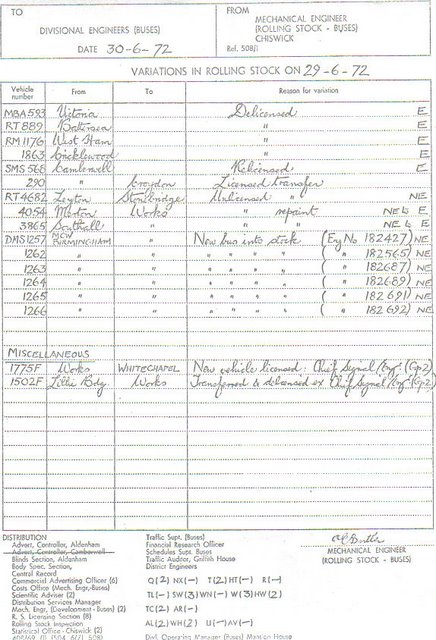 TO
DIVISIONAL ENGINEERS (BUSES)
DATE 30-6-72
FROM
MECHANICAL ENGINEER
(ROLLING STOCK - BUSES)
CHISWICK
Ref. 508/1
VARIATIONS IN ROLLING STOCK ON 29-6-72
Vehicle number From To Reason for variation
MBA593 Victoria Delicensed E
RT889 Battersea " E
RM1176 West Ham " E
1863 Cricklewood " E
SMS568 Camberwell Relicensed E
290 " Croydon Licensed transfer
RT4682 Leyton Stonebridge Unlicensed " NE
4054 Merton Works " repaint NE & E
3865 Southall " " " NE & E
DMS1257 MCW BIRMINGHAM " New bus into stock (Eng No 182427) NE
1262 " " " " " " ( " 182565) NE
1263 " " " " " " ( " 182687) NE
1264 " " " " " " ( " 182689) NE
1265 " " " " " " ( " 182691) NE
1266 " " " " " " ( " 182692) NE
MISCELLANEOUS
1775F Works WHITECHAPEL New vehicle licensed: Chief Signal Engr. (Gp2)
1502F Lillie Bdg. Works Transferred & delicensed ex Chief Signal Engr. (Gp2)
DISTRIBUTION
Advert. Controller, Aldenham
Advert. Controller, Camberwell
Blinds Section, Aldenham
Body Spec. Section,
Central Record
Commercial Advertising Officer (6)
Costs Office (Mech. Engr.-Buses)
Scientific Adviser (2)
Distribution Services Manager
Mech. Engr. (Development - Buses) (2)
R. S. Licensing Section (8)
Rolling Stock Inspection
Statistical Office - Chiswick (2)
Traffic Supt. (Buses)
Financial Research Officer
Schedules Supt. Buses
Traffic Auditor, Griffith House
District Engineers
Q(2) NX(-) T(2) HT(-) R(-)
TL(-) SW(3) WN(-) W(3) HW(2)
TC(2) AR(-)
AL(2) WH(2) U(-) AV(-)
Divl. Operating Manager (Buses) Mansion House
MECHANICAL ENGINEER
(ROLLING STOCK - BUSES)